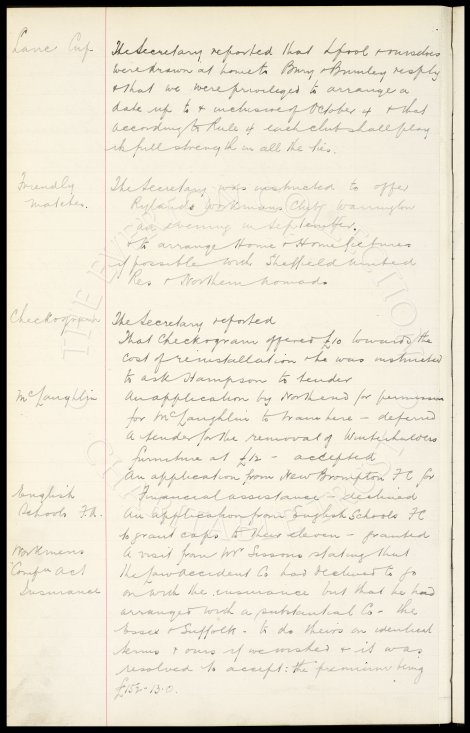 Lanc Cup
The Secretary reported that Lpool & ourselves
were drawn at home to Bury & Burnley resply
& that we were privileged to arrange a
date up to & inclusive of October 4 & that
according to Rule 4 each club shall play
its full strength in all the ties.
Friendly
matches.
The Secretary was instructed to offer
Rylands Workmans Club, Warrington
an evening in September.
& to arrange Home & Home fixtures
if possible with Sheffield United
Res & Northern Nomads
Checkogram
The Secretary reported
That Checkogram offered £10 towards the
cost of reinstallation & he was instructed
to ask Hampson to tender
McLaughlin
An application by Northend for permission
for McLaughlin to train here - deferred
A tender for the removal of Winterhalders
furniture at £12 - accepted
An application from New Brompton FC for
Financial assistance - declined
English
Schools F.A.
An application from English Schools FC
to grant caps to their eleven - granted
Workmens
Compn Act
Insurance
A visit from Mr Sissons stating that
the Law Accident Co had declined to go
on with the insurance but that he had
arranged with a substantial Co - the
Essex & Suffolk - to do theirs on identical
terms & ours if we wished & it was
resolved to accept: the premium being
£152-13-0.
THE EVERTON
COLLECTION